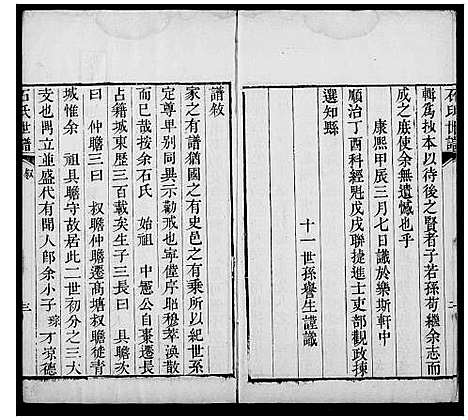 石氏世譜
輯爲抄本以待後之賢者子若孫苟繼余志而
成之庶使余無遺憾也乎
康熙甲辰三月七日識於樂斯軒中
順治丁酉科經魁戊戌聯捷進士吏部觀政揀
選知縣
十一世孫譽生謹識
譜敘
家之有譜猶國之有史邑之有乘所以紀世系
定尊卑别同異示勸戒也寧僅序昭穆萃渙散
而已哉按余石氏始祖中憲公自棗遷長
占籍城東歷三百載矣生子三長曰具瞻次
曰仲瞻三曰叔瞻仲瞻遷高塘叔瞻徙青
城惟余祖具瞻守故居此二世初分之三大
支也門立並盛代有聞人郎余小子琮才凉德
石氏世譜 敘 三